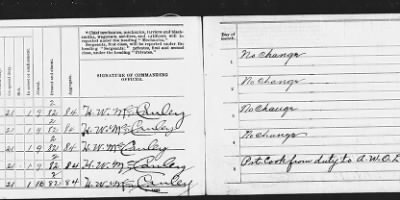 "Chief mechanics, mechanics, farriers and blacksmiths, wagoners, saddlers, and artificers will be reported under the heading "Mechanics."
Sergeants, first class, will be reported under the heading "Sergeants"; privates, first and second class, under the heading "Privates."
SIGNATURE OF COMMANDING OFFICER.
Present and absent.
Aggregate.
Day of month.
2
21 1 9 82 84 H. W. McCauley
2
21 1 9 82 84 H. W. McCauley
2
21 1 9 82 84 H. W. McCauley
2
21 1 9 82 84 H. W. McCauley
2
21 1 10 82 84 H. W. McCauley
1 No change
2 No change
3 No change
4 No change
5 Pvt. Cook from duty to A.W.O.L